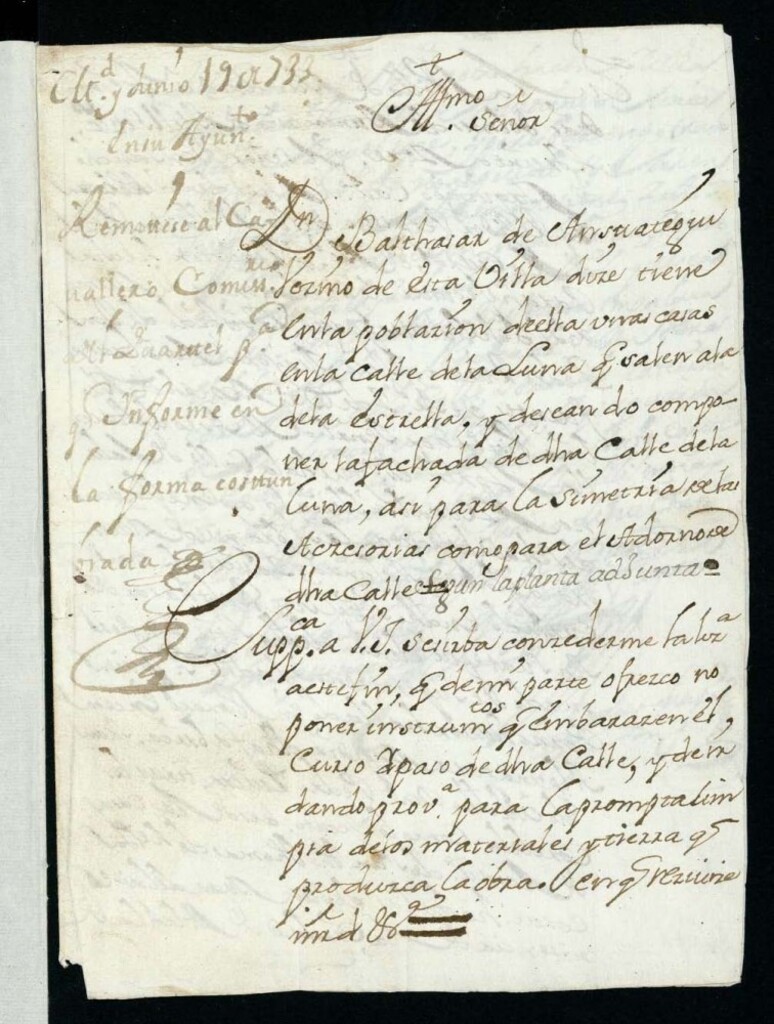 M.d y Junio 19 de 733
En su Ayunt.to
Remítese al Ca-
vallero Comiss.rio
del Quartel p.a
q.e Informe en
la forma acostum
brada
Illmo Señor
Dn Balthasar de Ansuategui
Vezino de esta Villa dize tiene
en la poblazion de ella unas casas
en la calle de la Luna q salen a la
de la Estrella, y deseando compo-
ner la fachada de dha Calle de la
Luna, asi para la Simetria de las
Aczesorias como para el Adorno de
dha Calle segun la planta adjunta
Supp.ca a V.I. se sirba conzederme la liz.a
a este fin, q de mi parte ofrezco no
poner instrumtos q Embarazen el,
Curso ò paso de dha Calle, y de ir
dando prov.a para la prompta lim
pia de los materiales y tierra q
produzca la obra. en q rezivire
mrd &a